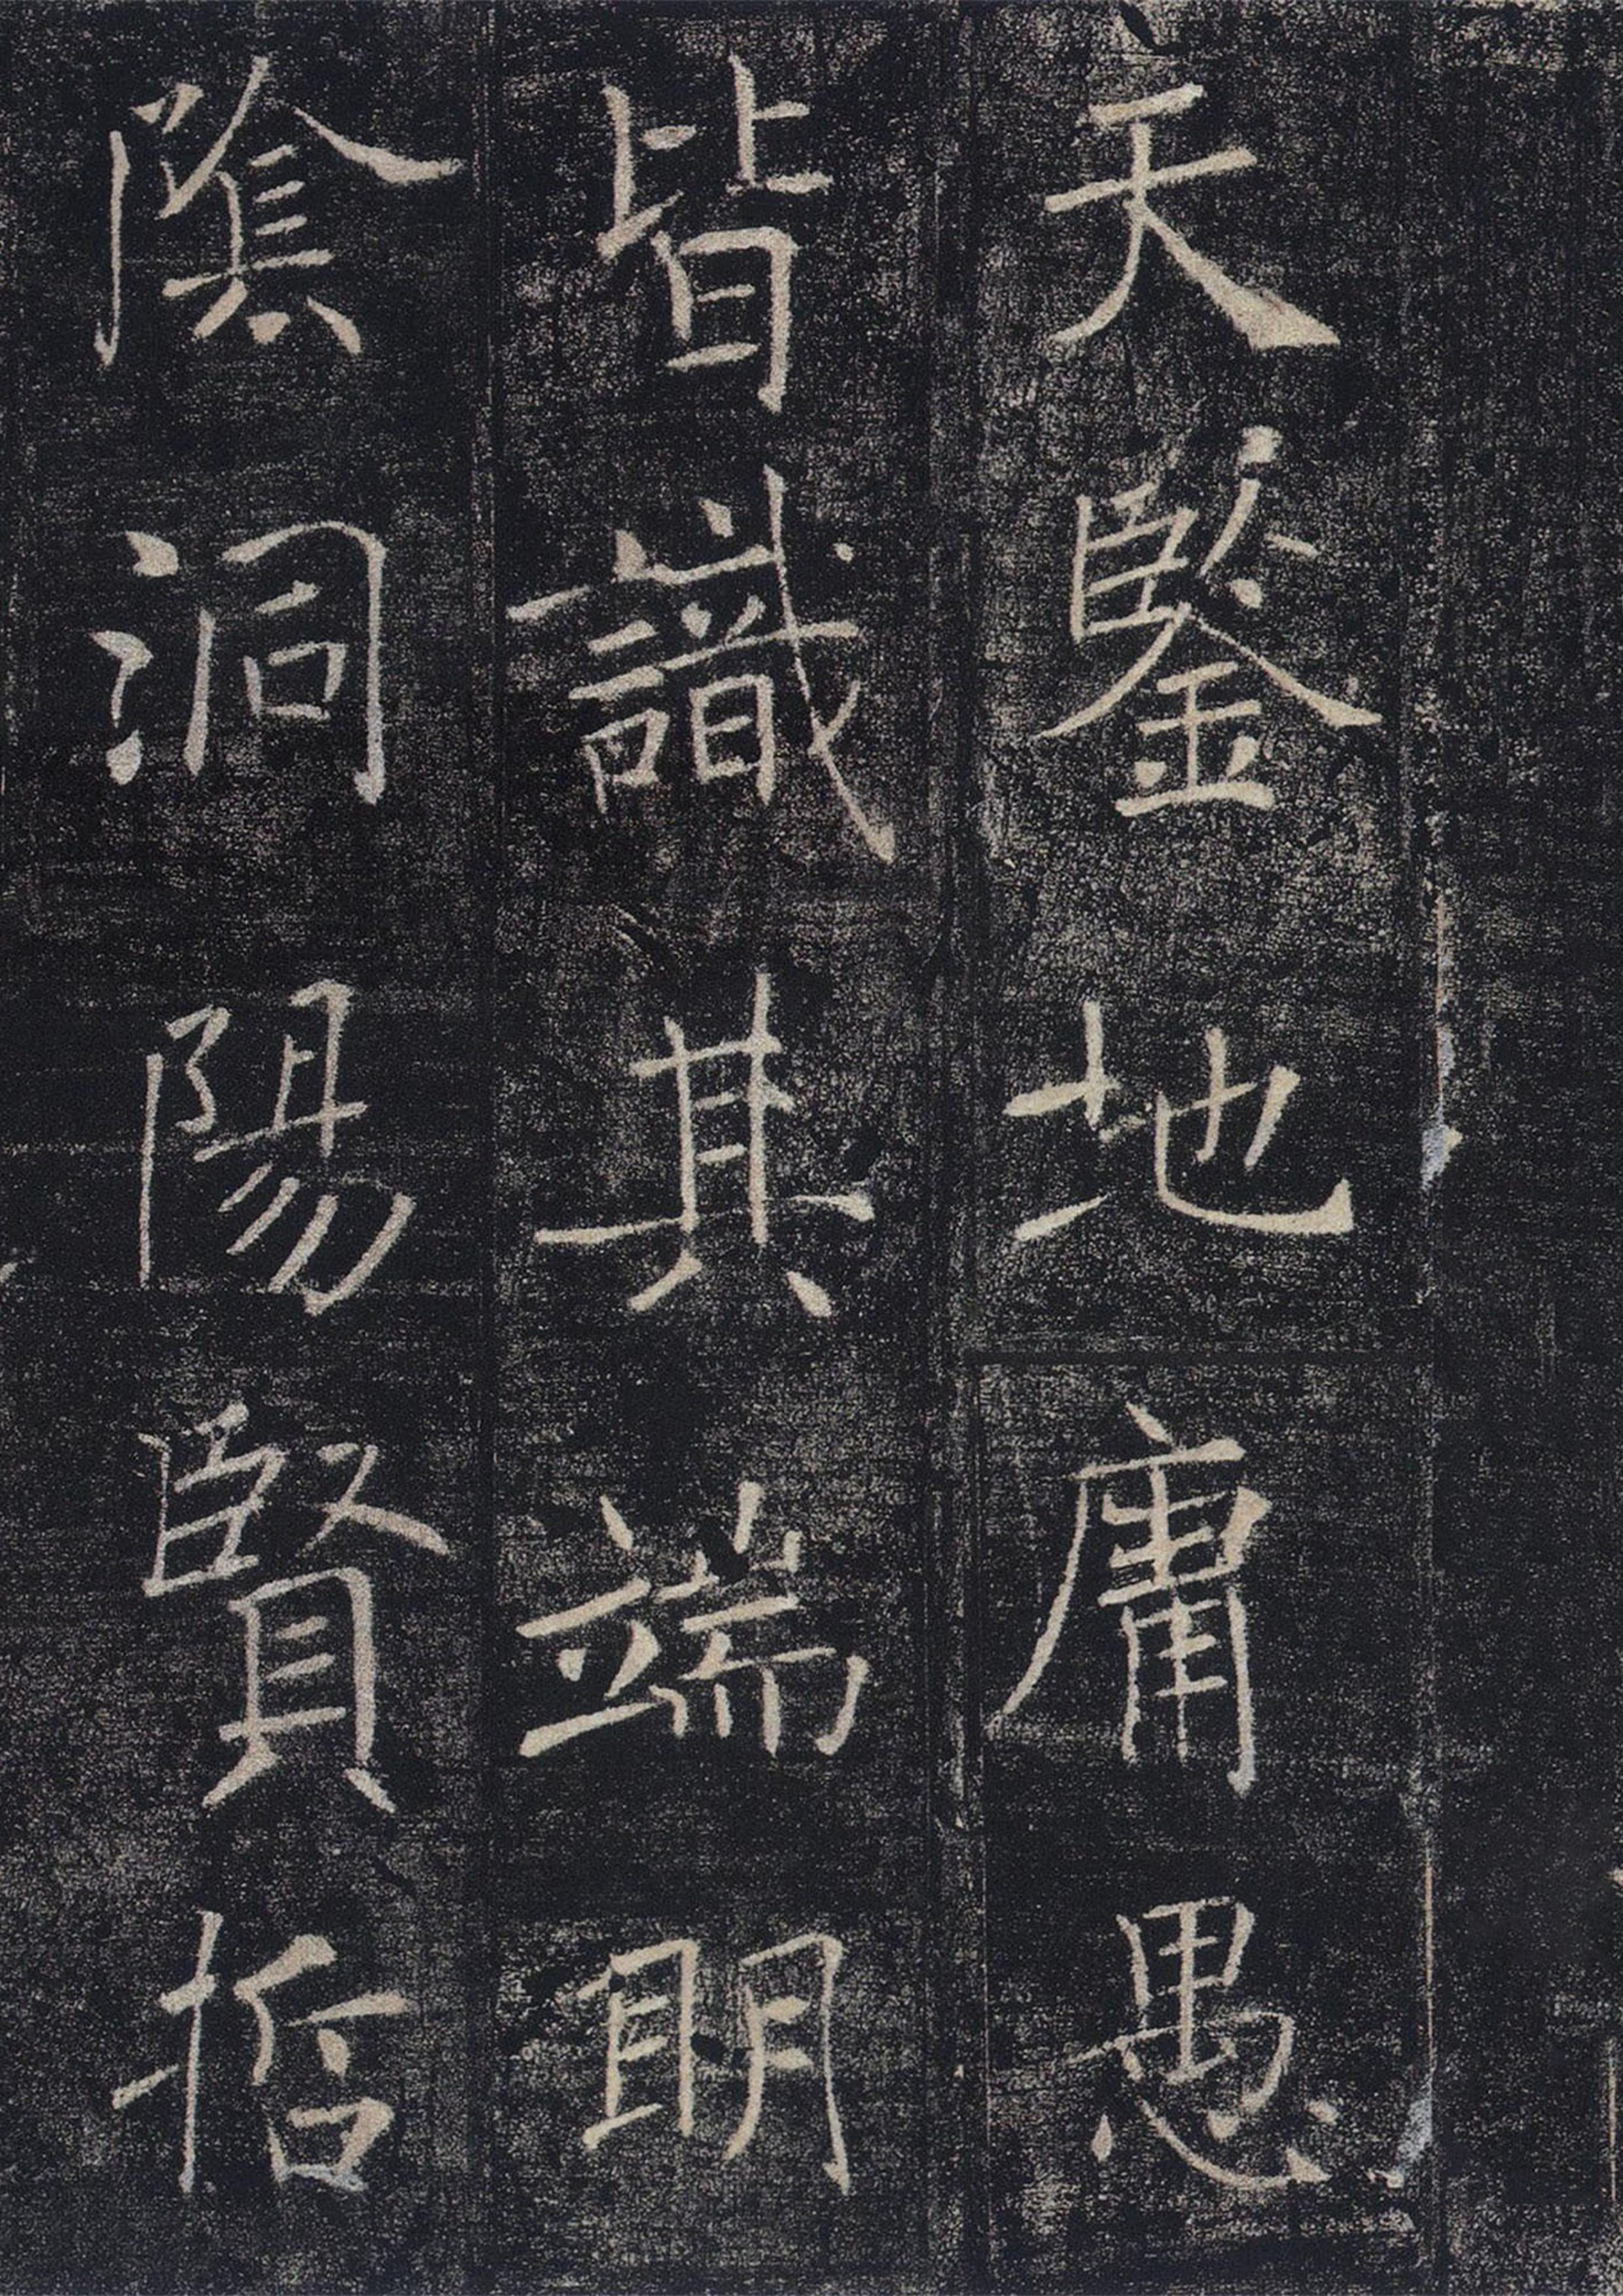 天鑒地庸愚
皆識其端明
陰洞陽賢哲